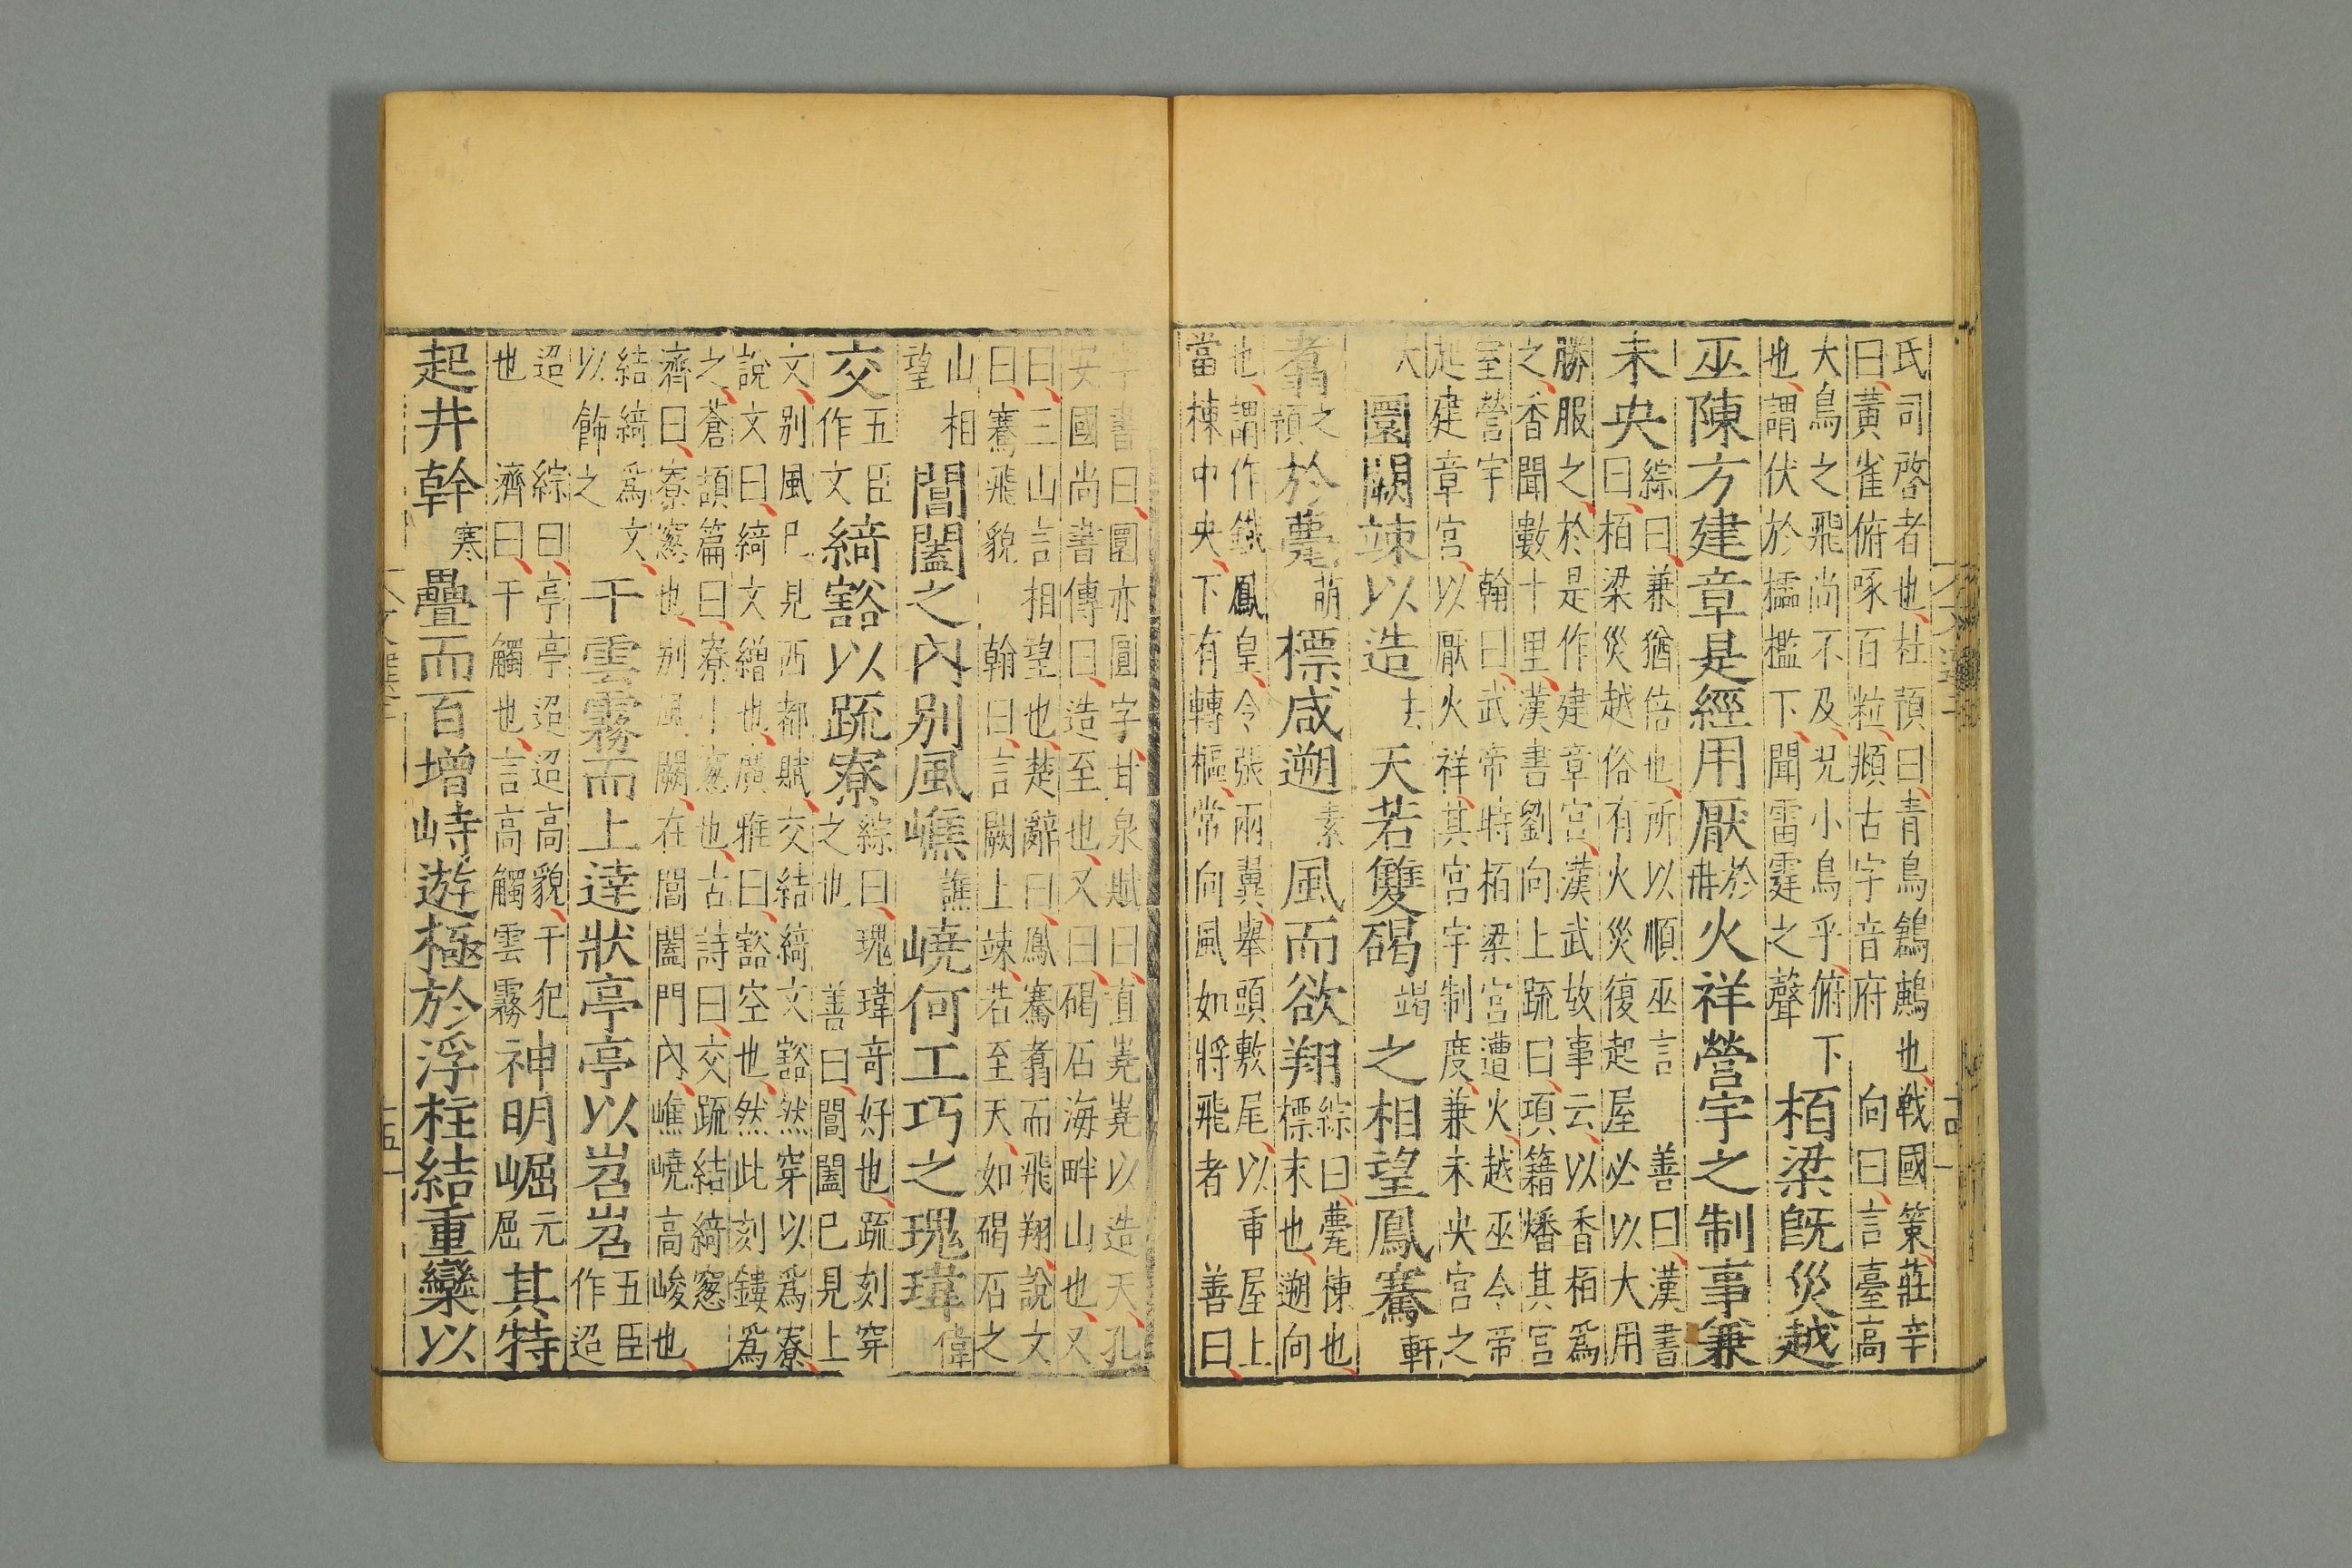 氏司啓者也杜預曰青鳥鶬鷃也戰國策莊辛
曰黃雀俯啄百粒頫古字音府　向曰言臺高
大鳥之飛尚不及况小鳥乎俯下
也謂伏於櫺檻下聞雷霆之聲
栢梁旣災越
巫陳方建章是經用厭於冉火祥營宇之制事兼
未央
綜曰兼猶倍也所以順巫言　善曰漢書
曰栢梁災越俗有火災復起屋必以大用
勝服之於是作建章宮漢武故事云以香栢爲
之香聞數十里漢書劉向上疏曰項籍燔其宮
室營宇　翰曰武帝時栢梁宮遭火越巫令帝
起建章宮以厭火祥其宮宇制度兼未央宮之
大
圜闕竦以造去天若雙碣竭之相望鳳騫軒
翥之預於甍萌標咸遡素風而欲翔
綜曰甍棟也
標末也遡向
也謂作鐵鳳皇令張兩翼舉頭敷尾以重屋上
當棟中央下有轉樞常向風如將飛者　善曰
書曰圜亦圓字甘泉賦曰直嶤嶤以造天孔
安國尚書傳曰造至也又曰碣石海畔山也又
曰三山言相望也楚辭曰鳳騫翥而飛翔說文
曰騫飛貌　翰曰言闕上竦若至天如碣石之
山相
望
閶闔之內别風嶕譙嶢何工巧之瑰瑋偉
交五臣作文綺豁以疏寮
綜曰瑰瑋奇好也疏刻穿
之也　善曰閶闔已見上
文别風已見西都賦交結綺文豁然穿以爲寮
說文曰綺文繒也廣雅曰豁空也然此刻鏤爲
之蒼頡篇曰寮小窻也古詩曰交疏結綺窻
濟曰寮窻也别風闕在閶闔門內嶕嶢高峻也
結綺爲文
以飾之
干雲霧而上逹狀亭亭以岧岧五臣作迢
迢　綜曰亭亭迢迢高貌干犯
也　濟曰干觸也言高觸雲霧
神明崛元屈其特
起井幹寒疊而百增峙遊極於浮柱結重欒以